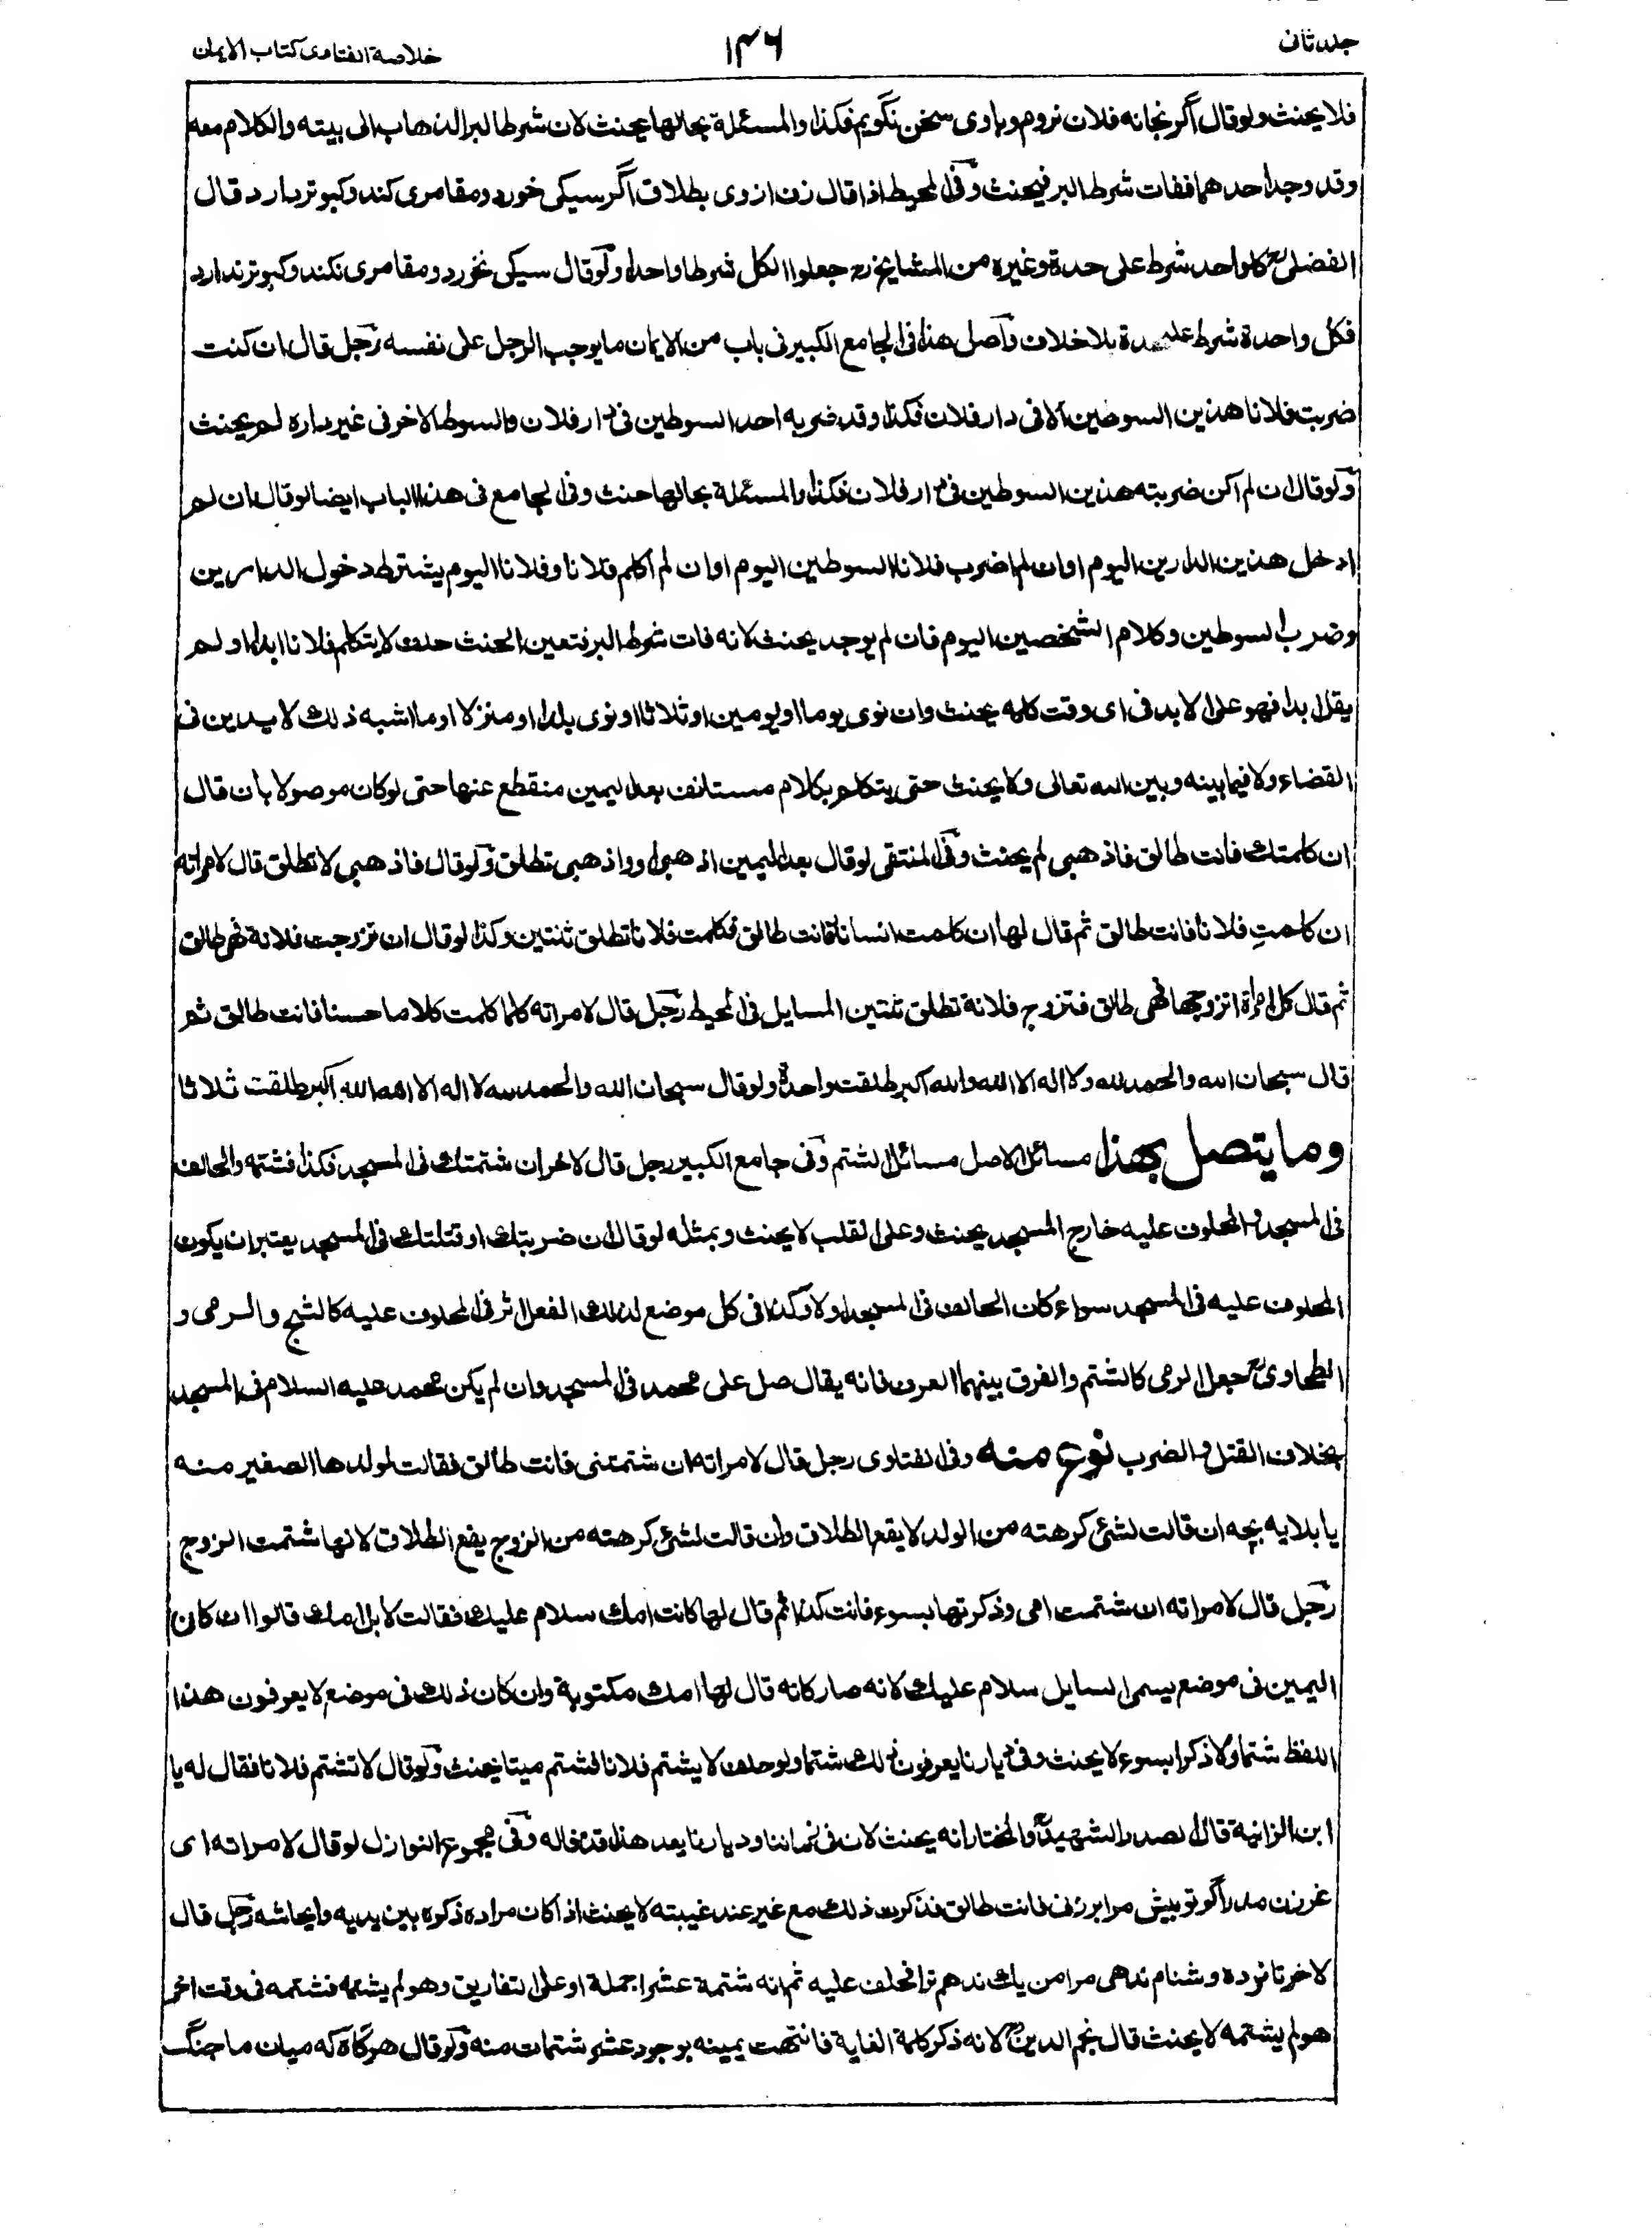 جلد ثانی
۱۴۶
خلاصة الفتاوی کتاب الایمان
فلا یحنث ولو قال اگر بخانه فلان نروم وباوی سخن نگویم فکذا والمسئلة بحالها یحنث لان شرط البر الذهاب الی بیته والکلام معه
وقد وجد احدهما ففات شرط البر فیحنث وفی المحیط اذا قال زن ازوی بطلاق اگر سیکی خورد ومقامری کند وکبوتر دارد قال
الفضلی رح کل واحد شرط علی حدة وغیره من المشایخ رح جعلوا الکل شرطا واحدا ولو قال سیکی نخورد ومقامری نکند وکبوتر ندارد
فکل واحدة شرط علیحدة بلا خلاف واصل هذا فی الجامع الکبیر فی باب من الایمان ما یوجب الرجل علی نفسه رجل قال ان کنت
ضربت فلانا هذین السوطین الا فی دار فلان فکذا وقد ضربه احد السوطین فی دار فلان والسوط الاخر فی غیر داره لم یحنث
ولو قال ان لم اکن ضربته هذین السوطین فی دار فلان فکذا والمسئلة بحالها حنث وفی الجامع فی هذا الباب ایضا لو قال ان لم
ادخل هذین الدارین الیوم او ان لم اضرب فلانا السوطین الیوم او ان لم اکلم فلانا وفلانا الیوم یشترط دخول الدارین
وضرب السوطین وکلام الشخصین الیوم فان لم یوجد یحنث لانه فات شرط البر فتعین الحنث حلف لا یتکلم فلانا ابدا او لم
یقل ابدا فهو علی الابد فی ای وقت کلمه یحنث وان نوی یوما او یومین او ثلاثا او نوی بلدا او منزلا او ما اشبه ذلک لا یدین فی
القضاء ولا فیما بینه وبین الله تعالی ولا یحنث حتی یتکلم بکلام مستانف بعد الیمین منقطع عنها حتی لو کان موصولا بان قال
ان کلمتک فانت طالق فاذهبی لم یحنث وفی المنتقی لو قال بعد الیمین اذهبی او واذهبی تطلق ولو قال فاذهبی لا تطلق قال لامراته
ان کلمتِ فلانا فانت طالق ثم قال لها ان کلمت انسانا فانت طالق فکلمت فلانا تطلق ثنتین وکذا لو قال ان تزوجت فلانة فهی طالق
ثم قال کل امراة اتزوجها فهی طالق فتزوج فلانة تطلق ثنتین المسایل فی المحیط رجل قال لامراته کلما کلمت کلاما حسنا فانت طالق ثم
قال سبحان الله والحمد لله ولا اله الا الله والله اکبر طلقت واحدة ولو قال سبحان الله والحمد لله لا اله الا الله الله اکبر طلقت ثلاثا
وما یتصل بهذا مسائل الاصل مسائل الشتم وفی جامع الکبیر رجل قال لاخر ان شتمتک فی المسجد فکذا فشتمه والحالف
فی المسجد والمحلوف علیه خارج المسجد یحنث وعلی القلب لا یحنث وبمثله لو قال ان ضربتک او قتلتک فی المسجد یعتبر ان یکون
المحلوف علیه فی المسجد سواء کان الحالف فی المسجد او لا وکذا فی کل موضع لذلک الفعل اثر فی المحلوف علیه کالشج والرمی و
الطحاوی رح جعل الرمی کالشتم والفرق بینهما العرف فانه یقال صل علی محمد فی المسجد وان لم یکن محمد علیه السلام فی المسجد
بخلاف القتل والضرب نوع منه وفی الفتاوی رجل قال لامراته ان شتمتنی فانت طالق فقالت لولدها الصغیر منه
یا بلایه بچه ان قالت لشئ کرهته من الولد لا یقع الطلاق وان قالت لشئ کرهته من الزوج یقع الطلاق لانها شتمت الزوج
رجل قال لامراته ان شتمت امی وذکرتها بسوء فانت کذا ثم قال لها کانت امک سلام علیک فقالت لا بل امک قالوا ان کان
الیمین فی موضع یسمی السایل سلام علیک لانه صار کانه قال لها امک مکتوبة وان کان ذلک فی موضع لا یعرفون هذا
اللفظ شتما ولا ذکرا بسوء لا یحنث وفی دیارنا یعرفون ذلک شتما ولو حلف لا یشتم فلانا فشتم میتا یحنث ولو قال لا تشتم فلانا فقال له یا
ابن الزانیة قال الصدر الشهید رح والمختار انه یحنث لان فی زماننا ودیارنا یعد هذا قذفا له وفی مجموع النوازل لو قال لامراته ای
غرزن مدر اگر تو پیش مرا برزنی فانت طالق فذکرت ذلک مع غیر عند غیبته لا یحنث اذا کان مراده ذکره بین یدیه وایحاشه رجل قال
لاخر تا نوده دشنام ندهی مرا من یک ندهم ترا فحلف علیه ثم انه شتمه عشرا جملة او علی التفاریق وهو لم یشتمه فشتمه فی وقت اخر
هو لم یشتمه لا یحنث قال نجم الدین رح لانه ذکر کلمة الغایة فانتهت یمینه بوجود عشر شتمات منه ولو قال هرگاه که میان ما جنگ